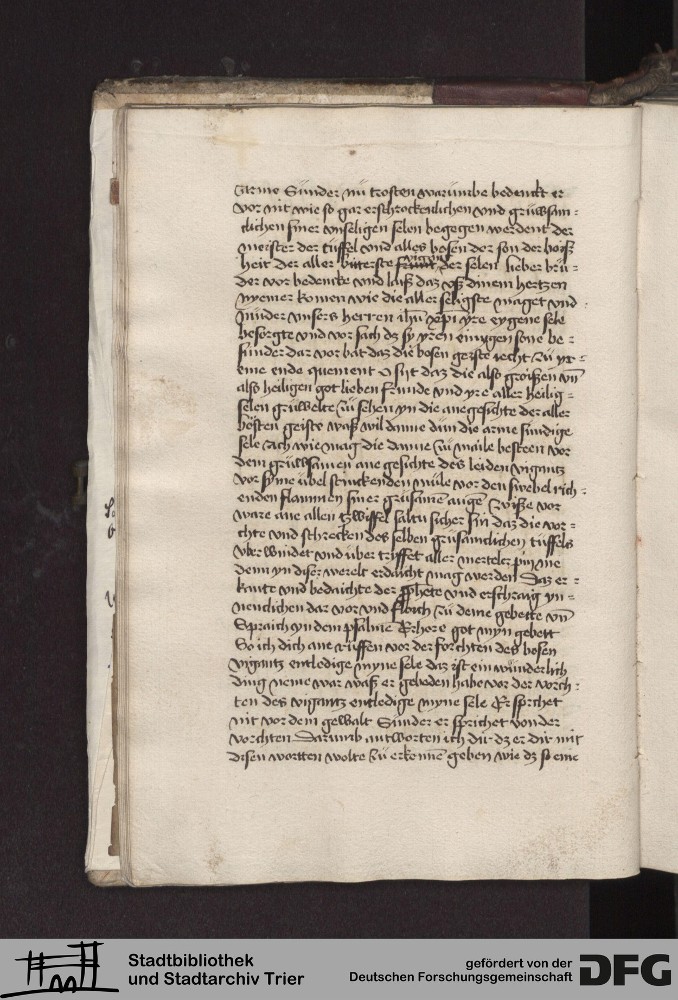 Arme Sunder nü trosten warümbe bedenckt er
vor nit wie so gar erschrockenlichen vnd grüwsam=
clichen siner vnseligen selen begegen werdent der
meister der tüffel vnd alles bosen der son der boiß
heit der aller bitterste vigant der selen lieber brü=
der vor bedencke vnd laiß daz vß dinem hertzen
nyemer komen wie die aller seligste maget vnd
müder vnsers herren ihu xpi yre eygene sele
besorgte vnd vor sach dz sy yren einigen sone be=
sunder dar vor bat daz die bosen geiste iecht zü yr=
eme ende quement O syt daz die also groißen vn
also heiligen got lieben frunde vnd yre aller heilig=
selen grüwelte zü sehen yn die anegesichte der aller
bösten geiste waß wil danne dün die arme sundige
sele Ach wie mag die danne zü maile besteen vor
dem grüwsamen ane gesichte des leiden vigantz
vor syme übel stinckenden müle vor den swebel rich=
enden flammen siner grüsamen augen zwiße vor
ware ane allen tzwiffel saltu sicher sin daz die vor=
chte vnd schrecken des selben grüsamlichen tüffels
vber windet vnd über triffet aller merteler pin die
denn yn diser werelt erdaicht mag werden Daz er=
kante vnd bedaichte der pphete vnd erschraig yn=
nenclichen dar vor vnd floich zü deme gebette vn
Spraich yn dem psalme Erhore got myn gebett
So ich dich ane rüffen vor der forchten des bosen
vigantz entledige myne sele daz ist ein wünderlich
ding neme war waß er gebeden habe vor der vorch=
ten des vigantz entledige myne sele Er sprichet
nit vor dem gewalt Sunder er sprichet vonder
vorchten Darumb antworten ich dir dz er dir mit
disen wortten wolte zü erkenne geben wie dz so eine
Stadtbibliothek
und Stadtarchiv Trier
gefördert von der
Deutschen Forschungsgemeinschaft
DFG